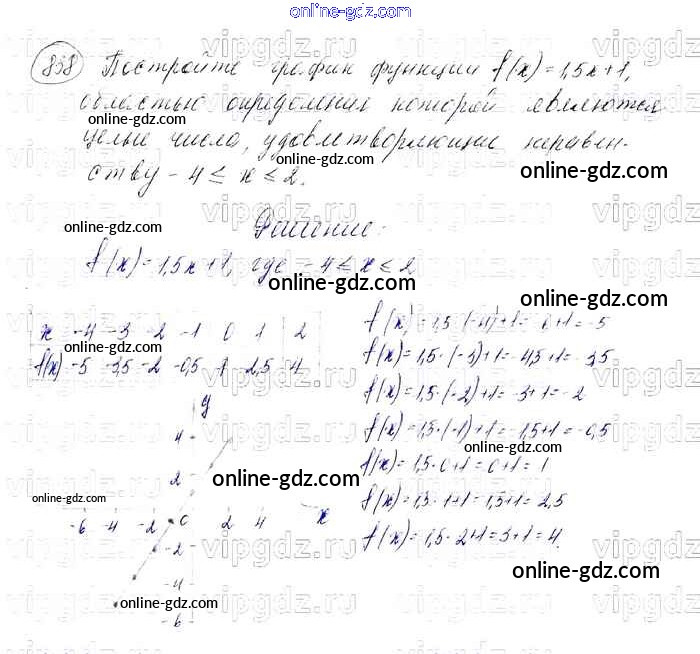 online-gdz.com
858 Постройте график функции f(x)=1,5x+1,
областью определения которой являются
целые числа, удовлетворяющие неравен-
ству -4 ≤ x ≤ 2.
Решение:
f(x)=1,5x+1, где -4 ≤ x ≤ 2
x -4 -3 -2 -1 0 1 2
f(x) -5 -3,5 -2 -0,5 1 2,5 4
f(x)=1,5·(-4)+1=-6+1=-5
f(x)=1,5·(-3)+1=-4,5+1=-3,5
f(x)=1,5·(-2)+1=-3+1=-2
f(x)=1,5·(-1)+1=-1,5+1=-0,5
f(x)=1,5·0+1=0+1=1
f(x)=1,5·1+1=1,5+1=2,5
f(x)=1,5·2+1=3+1=4.
y
4
2
-6 -4 -2 0 2 4 x
-2
-4
-6
online-gdz.com
online-gdz.com
online-gdz.com
online-gdz.com
online-gdz.com
online-gdz.com
online-gdz.com
online-gdz.com
online-gdz.com
online-gdz.com
online-gdz.com
online-gdz.com
online-gdz.com
vipgdz.ru
vipgdz.ru
vipgdz.ru